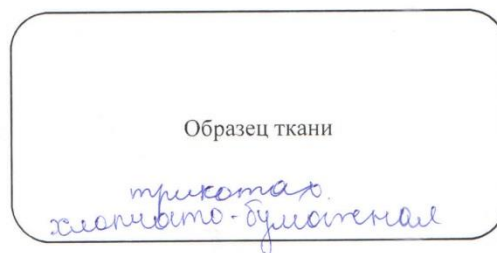 Образец ткани
трикотаж
хлопчато-бумажная